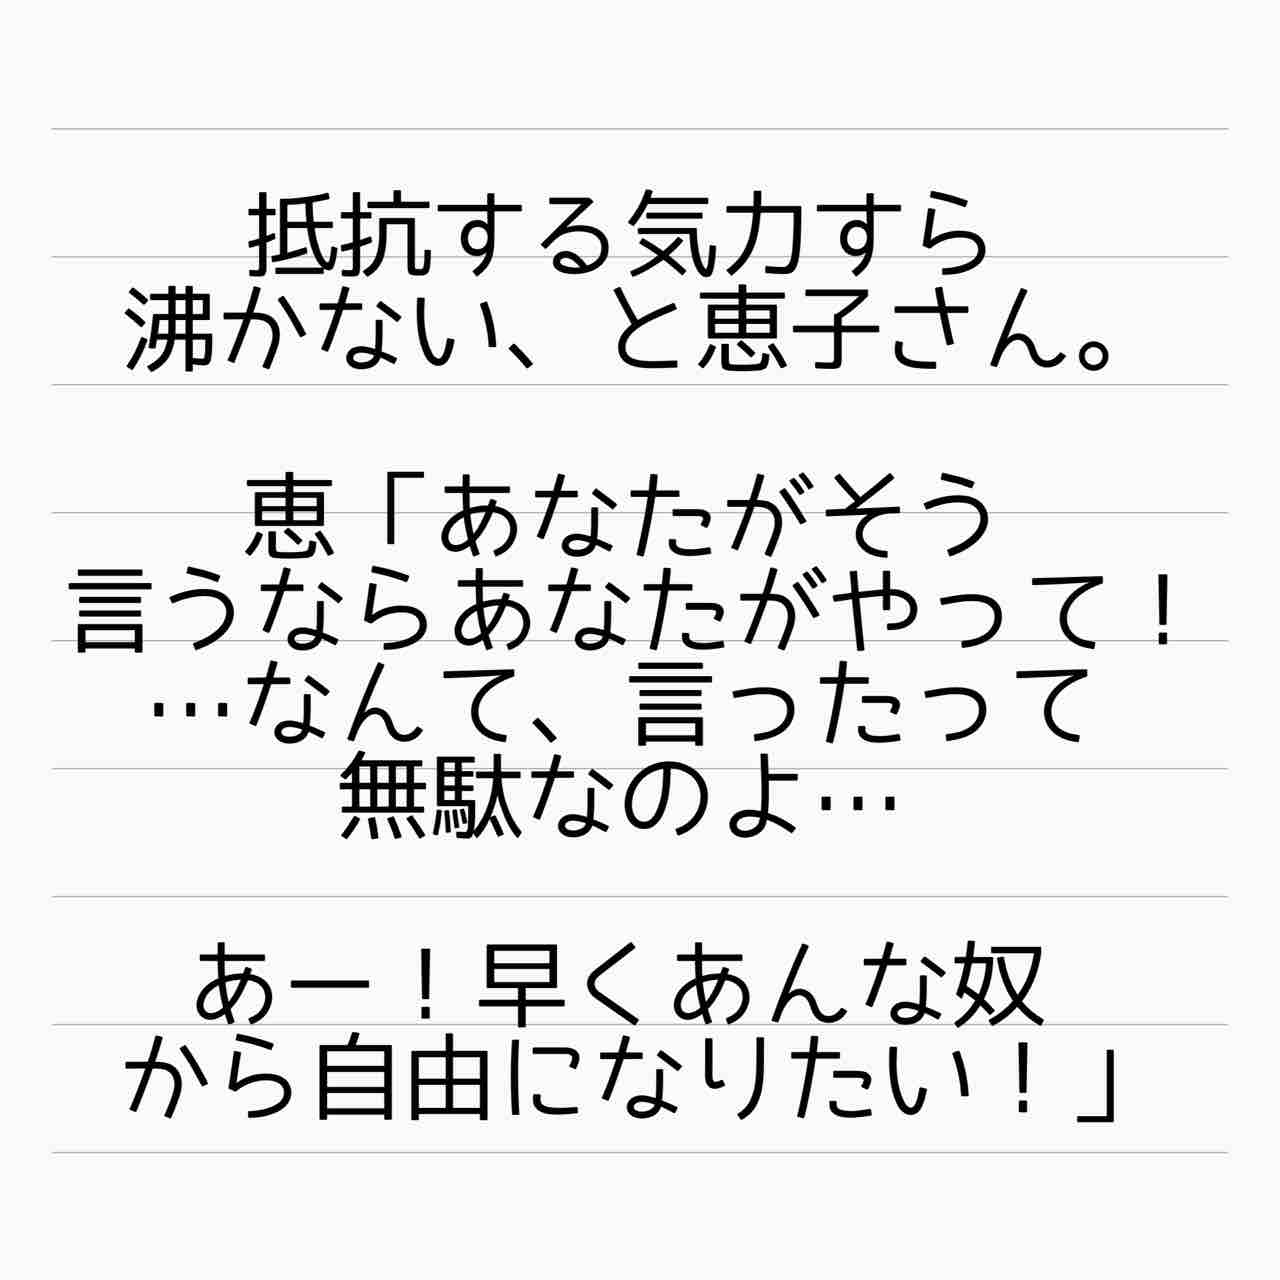 抵抗する気力すら
沸かない、と恵子さん。
恵「あなたがそう
言うならあなたがやって！
…なんて、言ったって
無駄なのよ…
あー！早くあんな奴
から自由になりたい！」